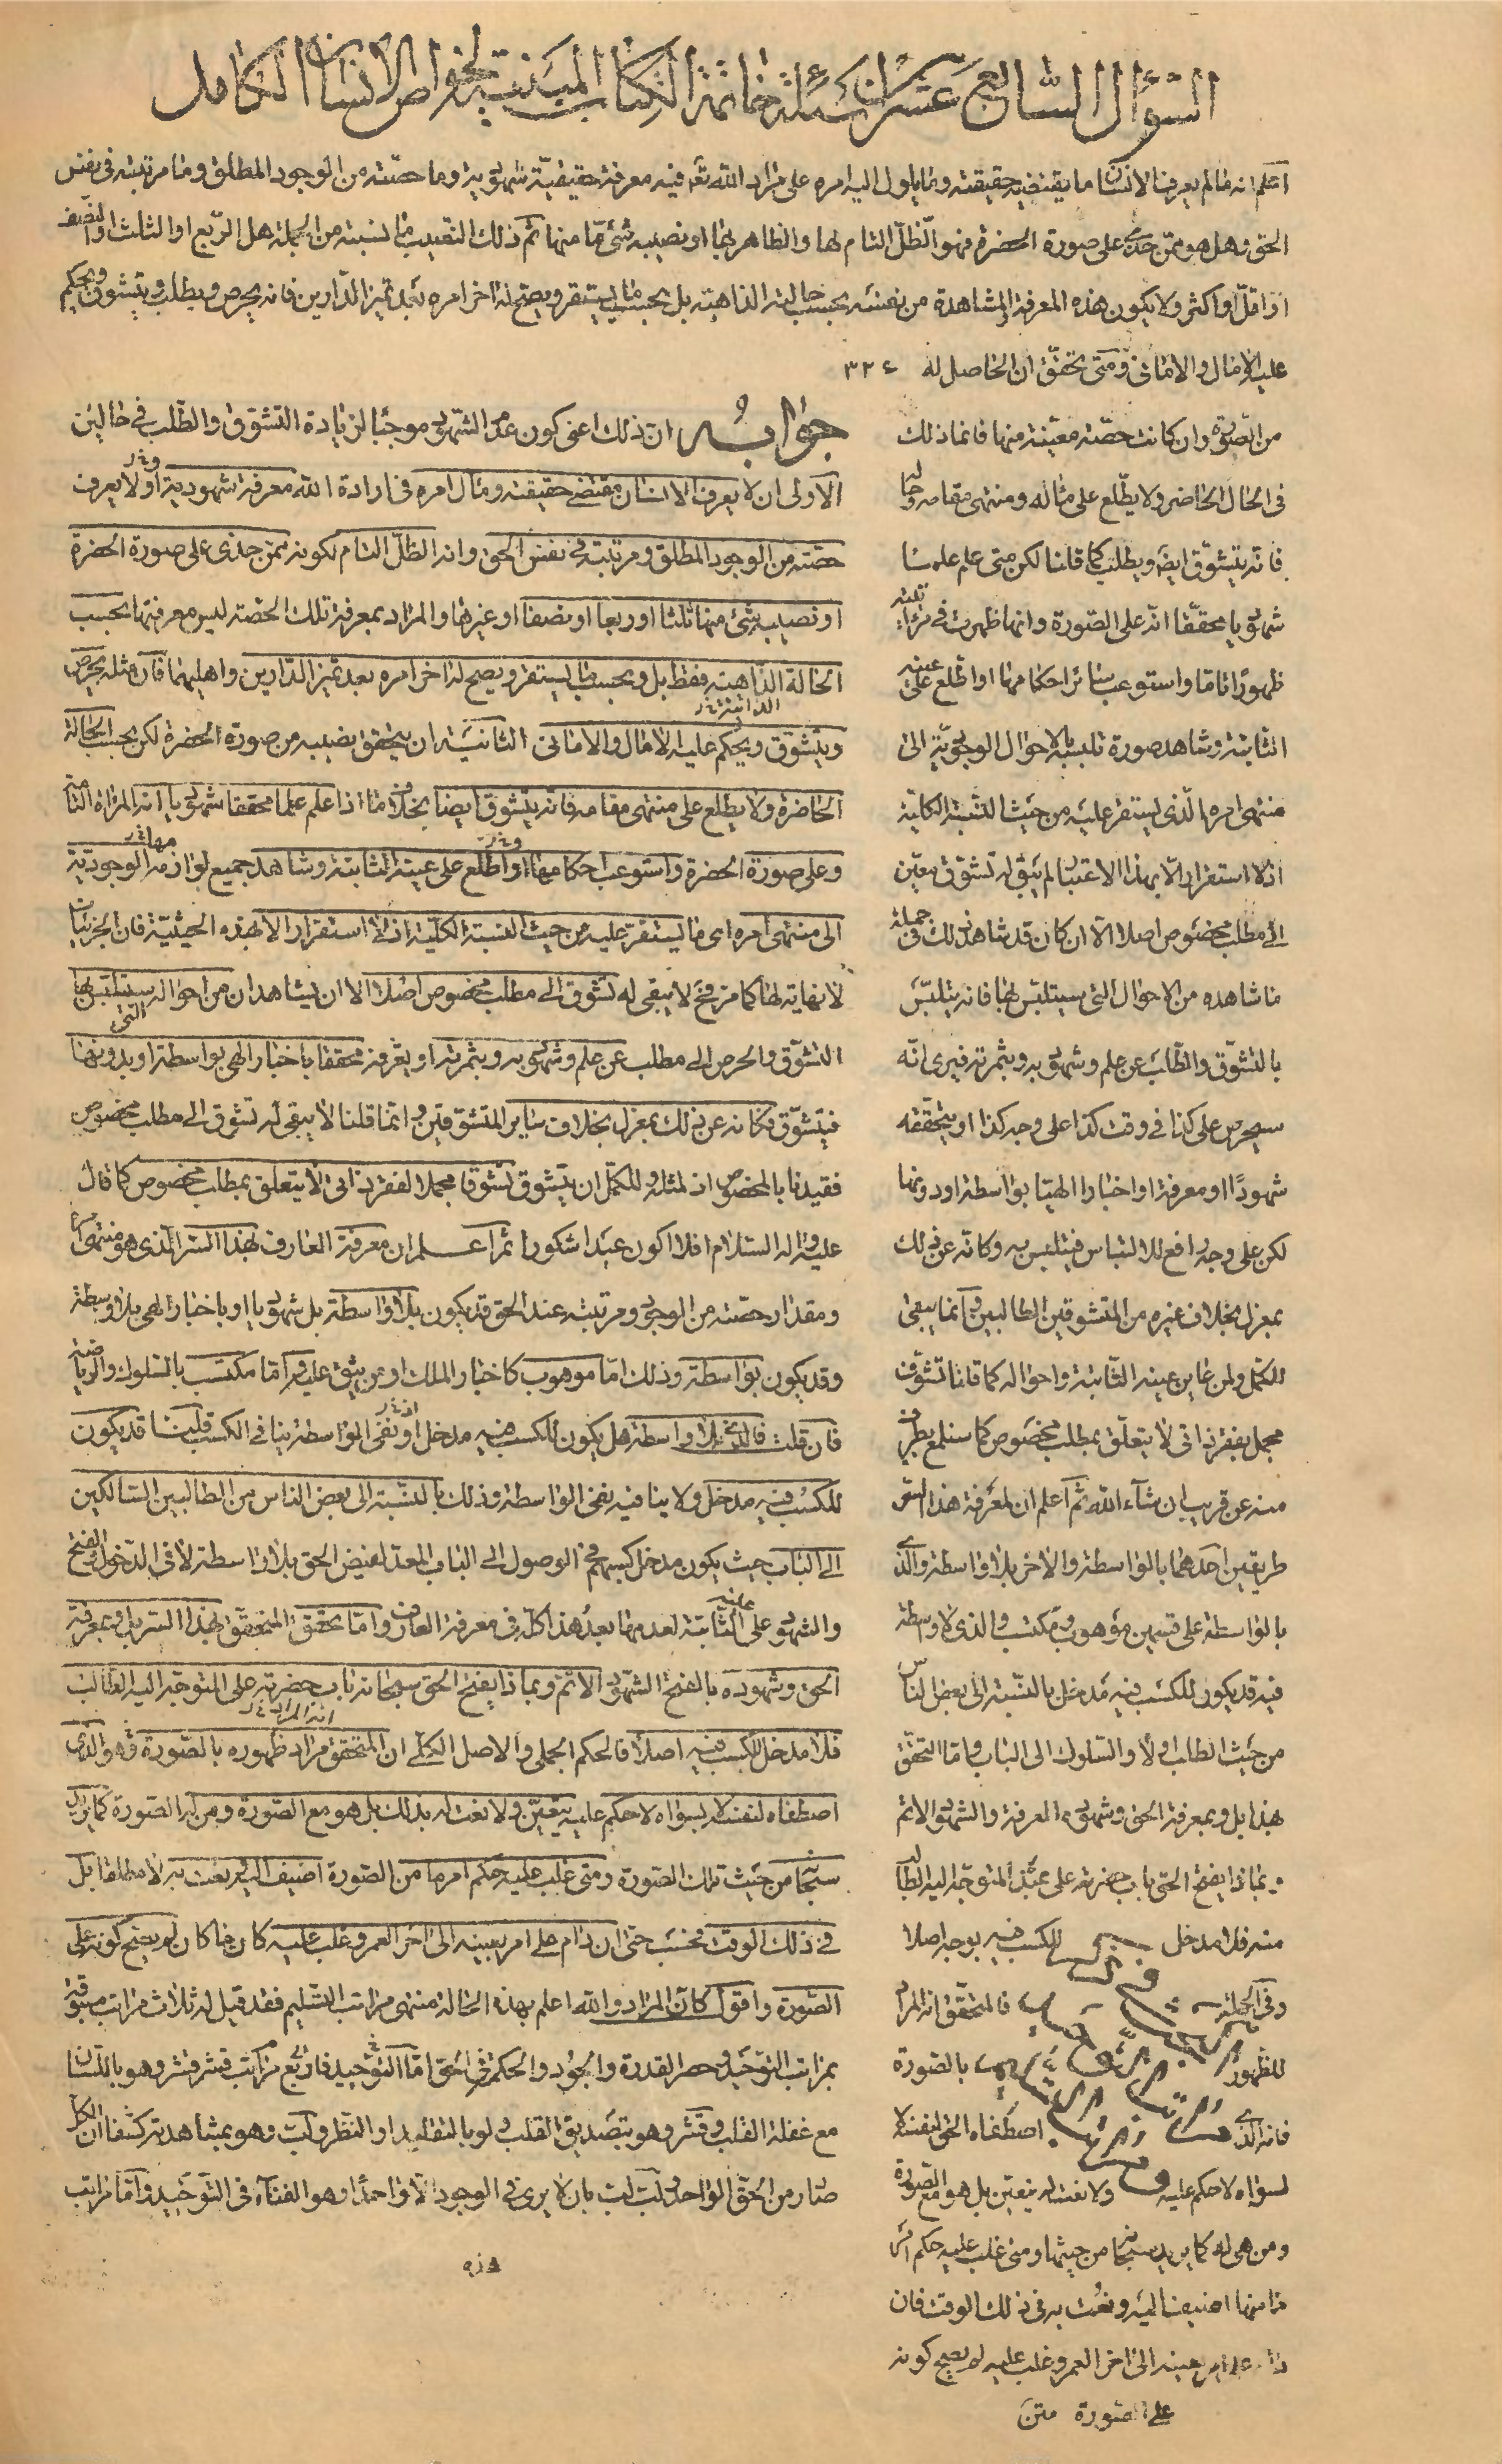 السؤال السابع عشر من اسئلة خاتمة الكتاب المبينة لخواص الانسان الكامل
اعلم انه ما لم يعرف الانسان ما يقتضيه حقيقته وما يأول اليه امره على مراد الله تعـ فيه معرفة حقيقيّة شهودية وما حصّته من الوجود المطلق وما مرتبته في نفس
الحق وهل هو ممّن حذى على صورة الحضرة فهو الظلّ التام لها والظاهر بها او نصيبه شئ مّا منها ثم ذلك النصيب ما نسبته من الجملة هل الربع او الثلث او النصف
او اقلّ او اكثر ولا يكون هذه المعرفة والمشاهدة من نفسه بحسب حالته الذاهبة بل بحسب ما يستقر ويصحّ له اخر امره بعد تميز الدّارين فانه يحرص ويطلب ويتشوق ويحكم
عليه الامال والامانى ومتى تحقّق ان الحاصل له ٣٢٤
من الصورة وان كانت حصّته معيّنة منها فانما ذلك
فى الحال الحاضر ولا يطّلع على مثاله ومنتهى مقامه وحاله
فانّه يتشوّق ايضا ويطلب كما قلنا لكن متى علم علما
شهوديا محققّا انّه على الصّورة وانها ظهرت فى مرآته
ظهورًا تاما واستوعب سائر احكامها او اطّلع على عينه
الثّابتة وشاهد صورة تلبسه بالاحوال الوجوديّة الى
منتهى امره الّذى يستقر عليه من حيث النسبة الكليّة
اذ لا استقرار الّا بهذا الاعتبار لم يبق له تشوّق معيّن
الى مطلب مخصوص اصلا الّا ان كان قد شاهد ذلك فى جملة
ما شاهده من الاحوال التى سيتلبّس بها فانه يتلبّس
بالتشوّق والطّلب عن علم وشهود به وبثمرته فيرى انّه
سيحرص على كذا فى وقت كذا على وجه كذا او يتحقّقه
شهودًا او معرفة او اخبارا الهيّا بواسطة او دونها
لكن على وجه رافع للالتباس فيتلبس به وكانّه عن ذلك
بمعزل بخلاف غيره من المتشوقين الطالبين وانما يبقى
للكمّل ولمن عاين عينه الثّابتة واحواله كما قلنا تشوّق
مجمل بفقر ذاتى لا يتعلّق بمطلب مخصوص كما سنلمع بطرف
منه عن قريب ان شآء الله ثم اعلم ان لمعرفة هذا السّر
طريقين احدهما بالواسطة والاخر بلا واسطة والذى
بالواسطة على قسمين موهوب ومكتسب والذى لا واسطة
فيه قد يكون للكسب فيه مدخل بالنسبة الى بعض الناس
من حيث الطلب اولا والسلوك الى الباب واما التحقق
بهذا بل وبمعرفة الحق وشهوده المعرفة والشهود الاتم
وبماذا يفتح الحق باب حضرته على عبده المتوجّه اليه الطالب
منه فلا مدخل للكسب فيه بوجه اصلا
وفى الجملة فالمتحقّق انه المراد
للظهور بالصورة
فانه الذى اصطفاه الحق لنفسه لا
لسواه لا حكم عليه ولا نعت له يتعيّن بل هو مع الصّورة
ومن هى له كما يريد سبحانه من حيثها ومتى غلب عليه حكم امر
ما منها اضيف اليه ونعت به فى ذلك الوقت فان
دام على امر بعينه الى اخر العمر وغلب عليه لم يصح كونه
على الصورة متن
جوابه ان ذلك اعنى كون عدم الشهود موجبا لزيادة التشوق والطّلب فى حالين
الاولى ان لا يعرف الانسان مقتضى حقيقته ومثال امره فى ارادة الله معرفة شهودية او لا يعرف
حصّته من الوجود المطلق ومرتبته فى نفس الحق وانه الظلّ التام لكونه ممن حذى على صورة الحضرة
او نصيبه شئ منها ثلثا او ربعا او نصفا او غيرها والمراد بمعرفة تلك الحصّة ليس معرفتها بحسب
الحالة الذّاهبة فقط بل وبحسب ما يستقر ويصح له اخر امره بعد تميز الدّارين واهليهما فان مثله يحرص
ويتشوّق ويحكم عليه الامال والامانى الثانية ان يتحقق نصيبه من صورة الحضرة لكن بحسب الحالة
الحاضرة ولا يطلع على منتهى مقامه فانّه يتشوق ايضا بخلاف ما اذا علم علما محققا شهوديا انه المرآة التامة
وعلى صورة الحضرة واستوعب احكامها او اطّلع على عينه الثابتة وشاهد جميع لوازمه الوجوديّة
الى منتهى امره اى ما يستقر عليه من حيث النسبة الكليّة اذ لا استقرار الا بهذه الحيثيّة فان الجزئيات
لا نهاية لها كما مرّ فح لا يبقى له تشوق الى مطلب مخصوص اصلا الا ان يشاهد ان من احواله التى سيتلبّس بها
التشوّق والحرص الى مطلب عن علم وشهود به وبثمرته او يعرفه محققا باخبار الهى بواسطة او بدونها
فيتشوّق فكانه عن ذلك بمعزل بخلاف ساير المتشوقين وانما قلنا لا يبقى له تشوق الى مطلب مخصوص
فقيدنا بالمخصوص اذ لمثله وللكمّل ان يتشوق تشوقا مجملا لفقر ذاتى لا يتعلق بمطلب مخصوص كما قال
عليه واله السلام افلا اكون عبدا شكورا ثم اعلم ان معرفة العارف بهذا السّر الّذى هو منتهى امره
ومقدار حصّته من الوجود ومرتبته عند الحق قد يكون بلا واسطة بل شهوديا او باخبار الهى بلا واسطة
وقد يكون بواسطة وذلك امّا موهوب كاخبار الملك او من يثق عليه وامّا مكتسب بالسّلوك والرياضة
فان قلت فالذى بلا واسطة هل يكون للكسب فيه مدخل اذ نفى الواسطة ينافى الكسب قلت قد يكون
للكسب فيه مدخل ولا ينافيه نفى الواسطة وذلك بالنّسبة الى بعض الناس من الطالبين السّالكين
الى الباب حيث يكون مدخل كسبهم فى الوصول الى الباب المعدّ لفيض الحق بلا واسطة لا فى الدّخول والفتح
والشهود على عينه الثّابتة لعدمها بعد هذا كلّه فى معرفة العارف وامّا تحقّق المتحقّق بهذا السّر بل وبمعرفة
الحق وشهوده بالفتح الشهود الاتم وبماذا يفتح الحق سبحانه باب حضرته على المتوجّه اليه الطّالب
فلا مدخل للكسب فيه اصلا فالحكم الجملى والاصل الكلّى ان المتحقق مراد ظهوره بالصّورة فهو الّذى
اصطفاه لنفسه لا لسواه لا حكم عليه يتعيّن ولا نعت له بذلك بل هو مع الصّورة ومن له الصّورة كما يريد
سبحانه من حيث تلك الصّورة ومتى غلب عليه حكم امر ما من الصّورة اضيف اليه ونعت به لا مطلقا بل
فى ذلك الوقت فحسب حتى ان دام على امر بعينه الى اخر العمر وغلب عليه كان ما كان لم يصح كونه على
الصّورة واقول كان المراد والله اعلم بهذه الحالة منتهى مراتب التسليم فقد قيل له ثلاث مراتب مسبوقة
بمراتب التوحيد وحصر القدرة والجود والحكمة فى الحق امّا التوحيد فاربع مراتب قشر قشر وهو باللّسان
مع غفلة القلب وقشر وهو بتصديق القلب ولو بالتقليد او النّظر ولبّ وهو بمشاهدته كشفا ان الكل
صار من الحق الواحد ولبّ لبّ بان لا يرى فى الوجود الّا واحدًا وهو الفنآء فى التّوحيد وامّا مراتب